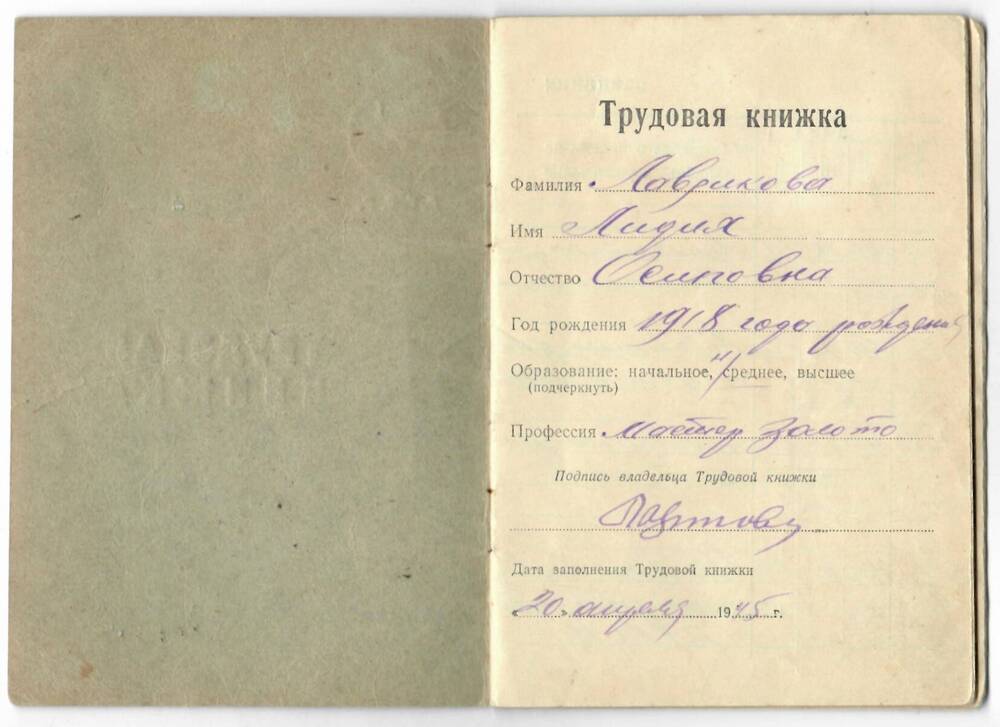 Трудовая книжка
Фамилия Лаврикова
Имя Лидия
Отчество Осиповна
Год рождения 1918 года рождения
Образование: начальное, среднее, высшее
(подчеркнуть)
Профессия Мастер золото
Подпись владельца Трудовой книжки
Дата заполнения Трудовой книжки
«20» апреля 1945 г.